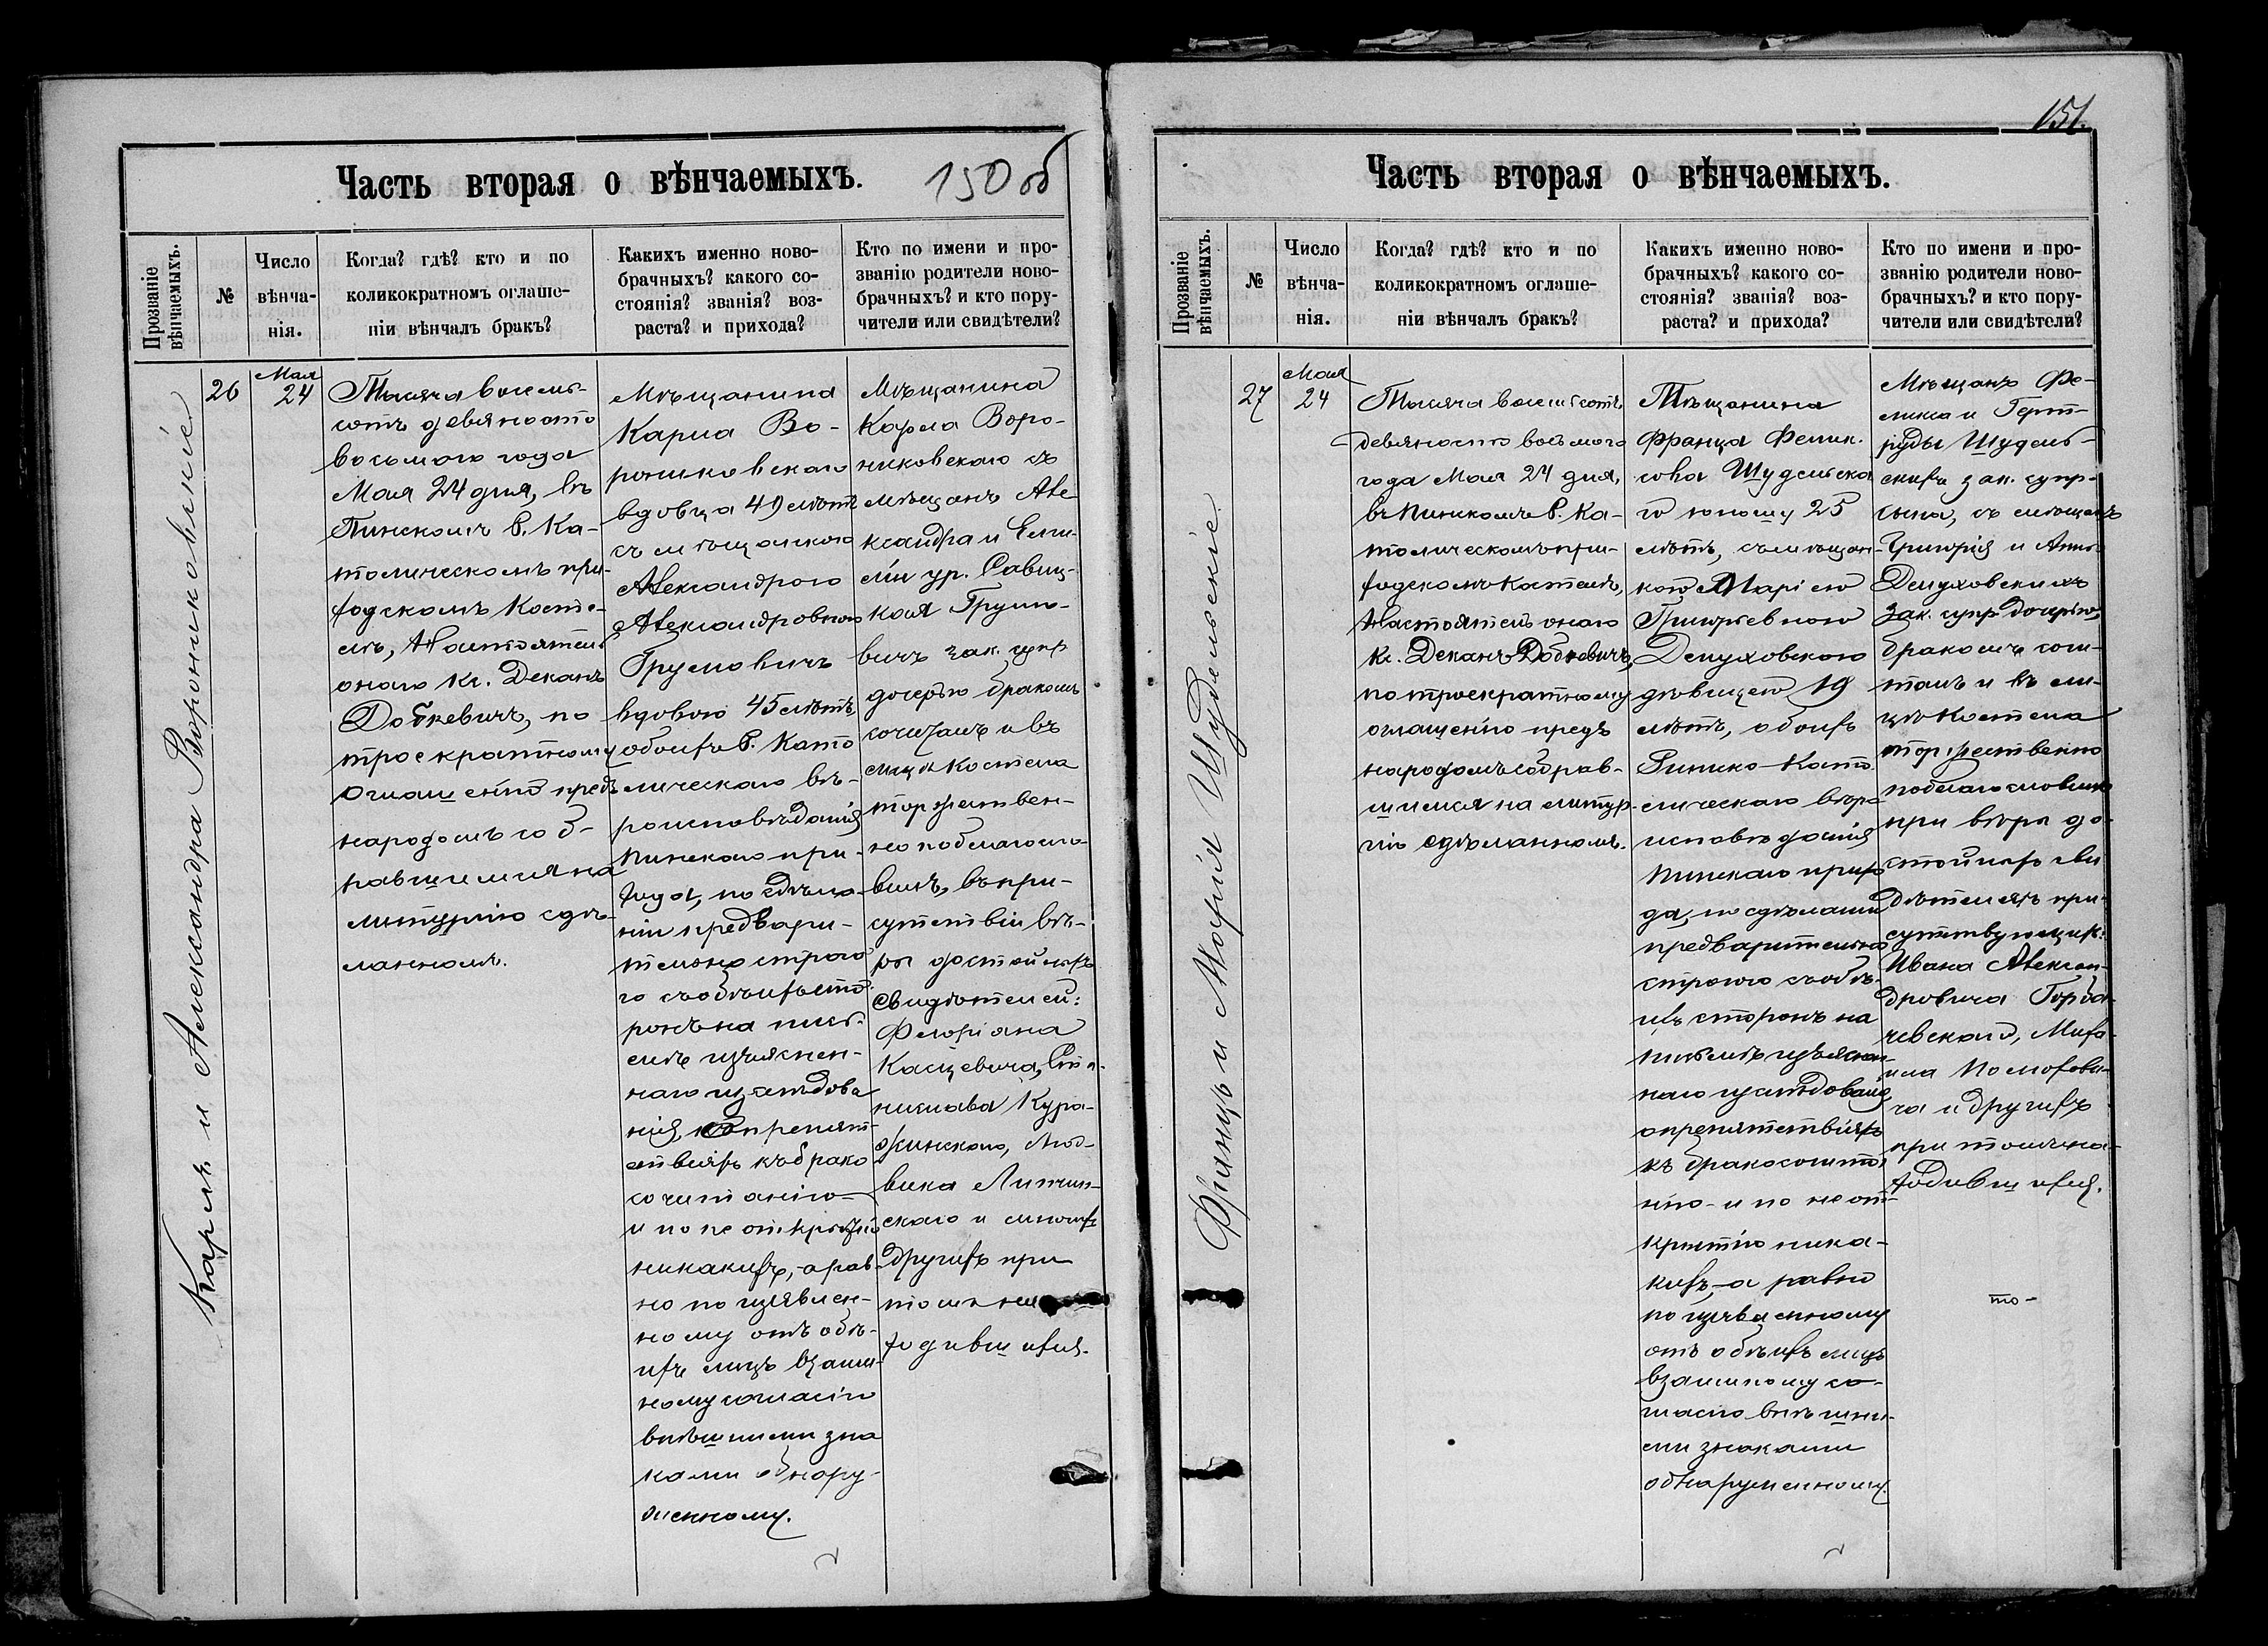 Часть вторая о вѣнчаемыхъ.
150 об
Прозваніе
вѣнчаемыхъ.
№
Число
вѣнча-
нія.
Когда? гдѣ? кто и по
коликократномъ оглаше-
ніи вѣнчалъ бракъ?
Какихъ именно ново-
брачныхъ? какого со-
стоянія? званія? воз-
раста? и прихода?
Кто по имени и про-
званію родители ново-
брачныхъ? и кто пору-
чители или свидѣтели?
Карлъ и Александра Воронниковскіе
26
Мая
24
Тысяча восемь-
сотъ девяносто
восьмого года
Мая 24 дня, въ
Пинскомъ Р. Ка-
толическомъ при-
ходскомъ Косте-
лѣ, Настоятель
онаго Кс. Деканъ
Добкевичъ, по
троекратному
оглашенію предъ
народомъ соб-
равшимся на
литургію сдѣ-
ланномъ.
Мѣщанина
Карла Во-
ронниковскаго
вдовца 49 лѣтъ
съ мѣщанкою
Александрою
Александровною
Грумовичъ
вдовою 45 лѣтъ,
обоихъ Р. Като
лическаго вѣ-
роисповѣданія
Пинскаго при-
хода, по сдѣла-
ніи предвари-
тельно строго
го съ обѣихъ сто
ронъ на пись-
мѣ изъяснен-
наго изслѣдова
нія, о препят-
ствіяхъ къ брако
сочитанію
и по не открытію
никакихъ, а рав-
но по изъявлен-
ному отъ обѣ-
ихъ лицъ взаим-
ному согласію
внѣшними зна
ками обнару-
женному.
Мѣщанина
Карла Воро-
никовскаго съ
мѣщанъ Але
ксандра и Еми-
ліи ур. Савиц-
кая Грумо-
вичъ зак. супр
дочерью бракомъ
сочиталъ и въ
лицѣ Костела
торжествен-
но поблагосло-
вилъ, въ при-
сутствіи вѣ-
ры достойныхъ
свидѣтелей:
Флоріана
Касцевича, Ста-
нислава Кура-
жинскаго, Люд-
вика Липин-
скаго и многихъ
другихъ при
томъ на
ходившихся.
151.
Часть вторая о вѣнчаемыхъ.
Прозваніе
вѣнчаемыхъ.
№
Число
вѣнча-
нія.
Когда? гдѣ? кто и по
коликократномъ оглаше-
ніи вѣнчалъ бракъ?
Какихъ именно ново-
брачныхъ? какого со-
стоянія? званія? воз-
раста? и прихода?
Кто по имени и про-
званію родители ново-
брачныхъ? и кто пору-
чители или свидѣтели?
Францъ и Марія Шудельскіе
27
Мая
24
Тысяча восемьсотъ
девяносто восьмого
года Мая 24 дня,
въ Пинскомъ Р. Ка-
толическомъ при-
ходскомъ Костелѣ,
Настоятель онаго
Кс. Деканъ Добкевичъ,
по троекратному
оглашенію предъ
народомъ собрав-
шимся на литур-
гію сдѣланномъ.
Мѣщанина
Франца Феликс-
сова Шудельска
го юношу 25
лѣтъ, съ мѣщан-
кою Маріею
Григорьевною
Демуховскою
дѣвицею 19
лѣтъ, обоихъ
Римско-Като-
лическаго вѣро-
исповѣданія
Пинскаго прихо
да, по сдѣланіи
предварительно
строгого съ обѣ-
ихъ сторонъ на
письмѣ изъяснен-
наго изслѣдованія,
о препятствіяхъ
къ бракосочита-
нію и по не от-
крытію ника-
кихъ, а равно
по изъявленному
отъ обѣихъ лицъ
взаимному со-
гласію внѣшни-
ми знаками
обнаруженному.
Мѣщанъ Фе-
ликса и Герт-
руды Шудель-
скихъ зак. супр-
сына, съ мѣщанъ
Григорія и Анны
Демуховскихъ
зак. супр дочерью,
бракомъ сочи-
талъ и въ ли-
цѣ Костела
торжественно
поблагословилъ
при вѣры до-
стойныхъ сви
дѣтеляхъ при-
сутствующихъ:
Ивана Алексан-
дровича Горба-
чевскаго, Миха-
ила Полюхови-
ча и другихъ
при томъ на-
ходившихся.
то-